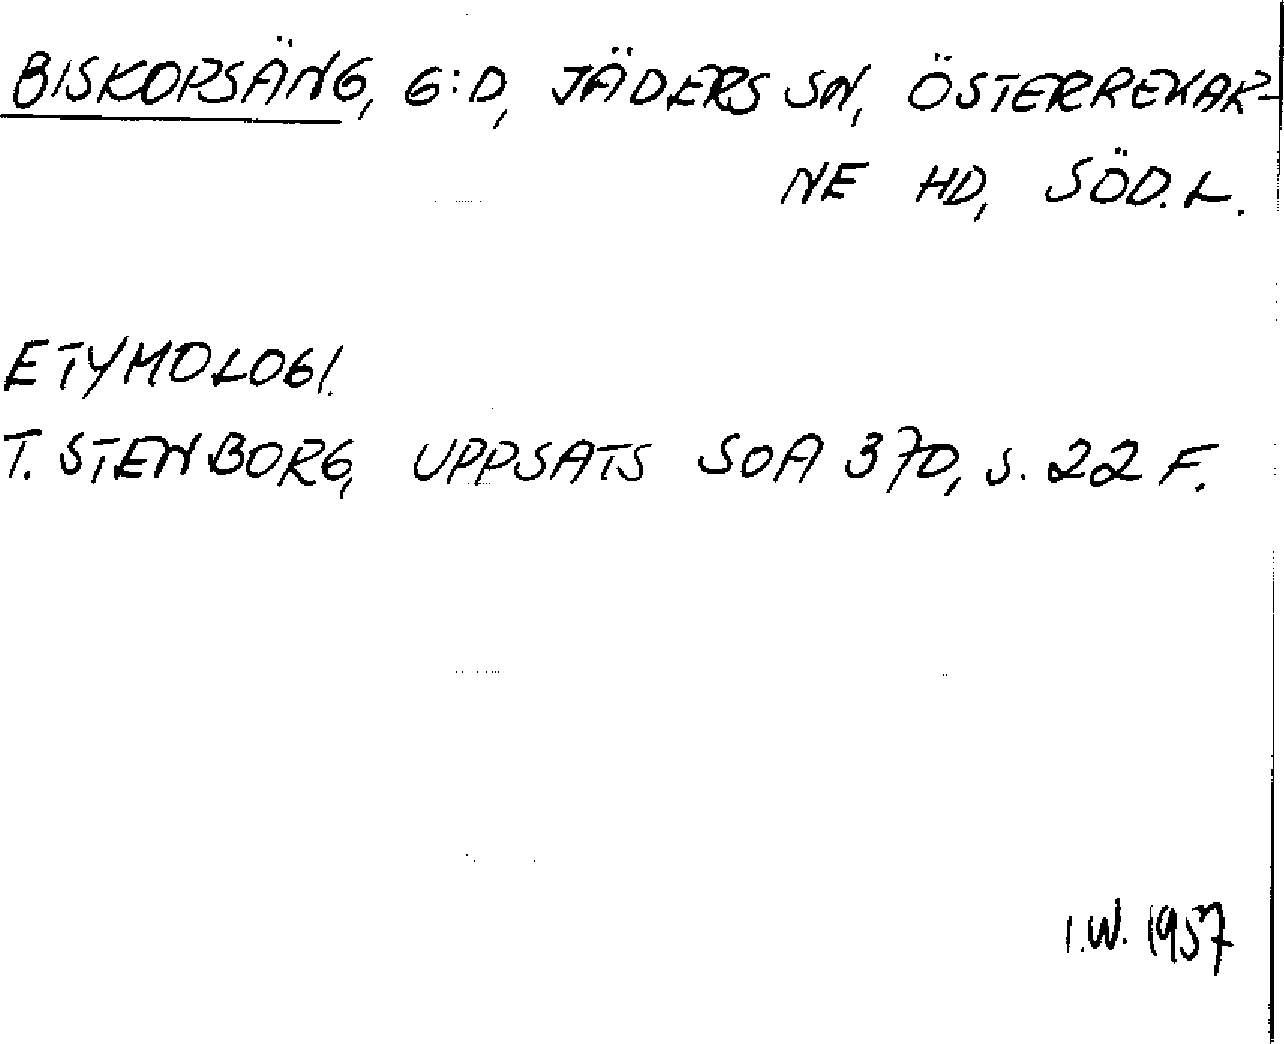 BISKOPSÄNG, G:D, JÄDERS SN, ÖSTERREKAR-
NE HD, SÖD.L.
ETYMOLOGI.
T. STENBORG, UPPSATS SOA 370, S. 22 F.
I.W. 1957